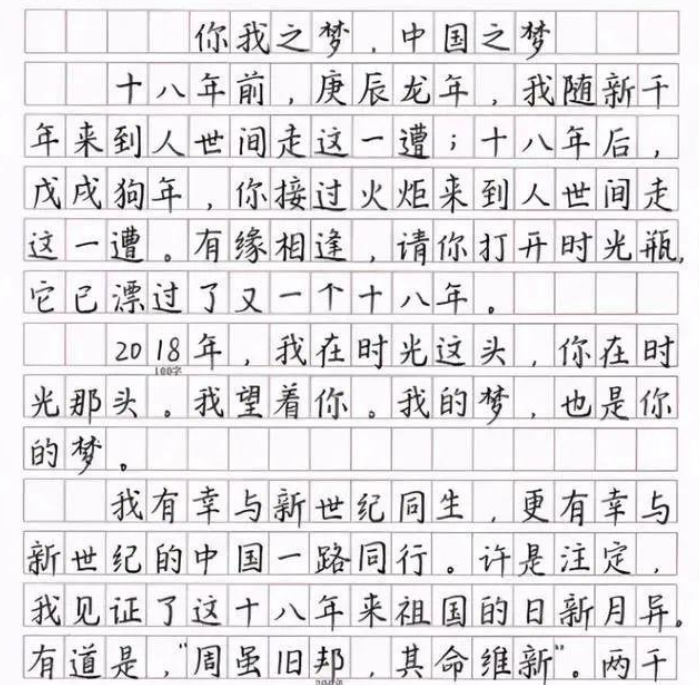 你我之梦，中国之梦
十八年前，庚辰龙年，我随新千
年来到人世间走这一遭；十八年后，
戊戌狗年，你接过火炬来到人世间走
这一遭。有缘相逢，请你打开时光瓶，
它已漂过了又一个十八年。
2018年，我在时光这头，你在时
100字
光那头。我望着你。我的梦，也是你
的梦。
我有幸与新世纪同生，更有幸与
新世纪的中国一路同行。许是注定，
我见证了这十八年来祖国的日新月异。
有道是，“周虽旧邦，其命维新”。两千